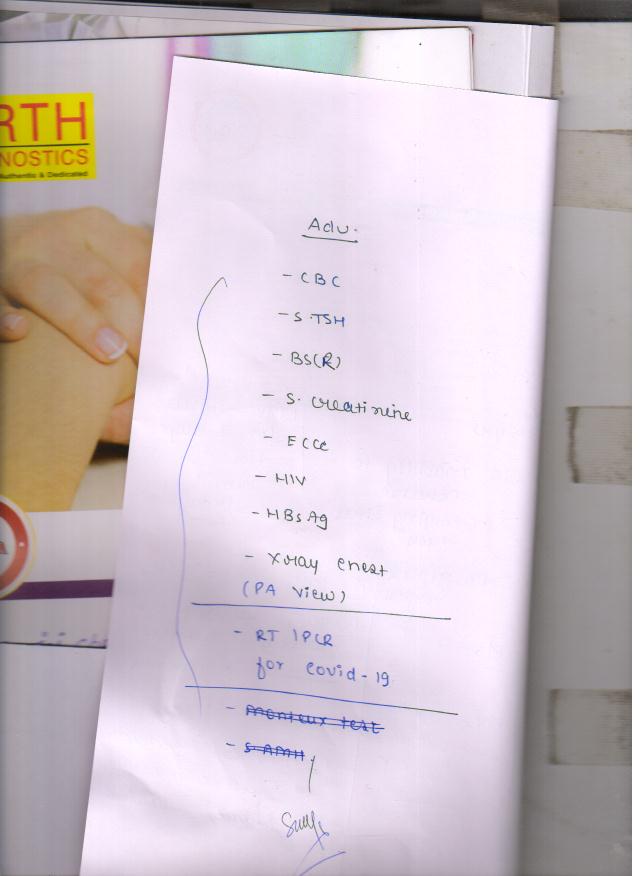 RTH
NOSTICS
Authentic & Dedicated
Adv.
- CBC
- S.TSH
- BS(R)
- S. creatinine
- ECG
- HIV
- HBsAg
- Xray chest
(PA view)
- RT IPCR
for covid-19
- montoux test
- S AMH